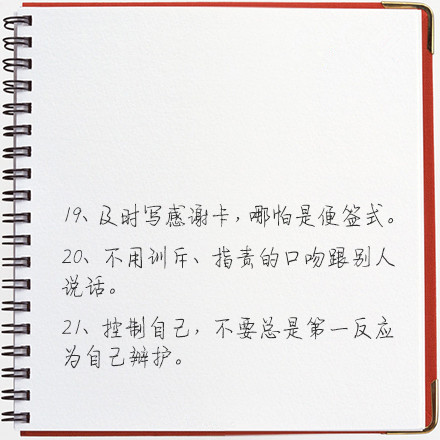 19、及时写感谢卡，哪怕是便签式。
20、不用训斥、指责的口吻跟别人
说话。
21、控制自己，不要总是第一反应
为自己辩护。